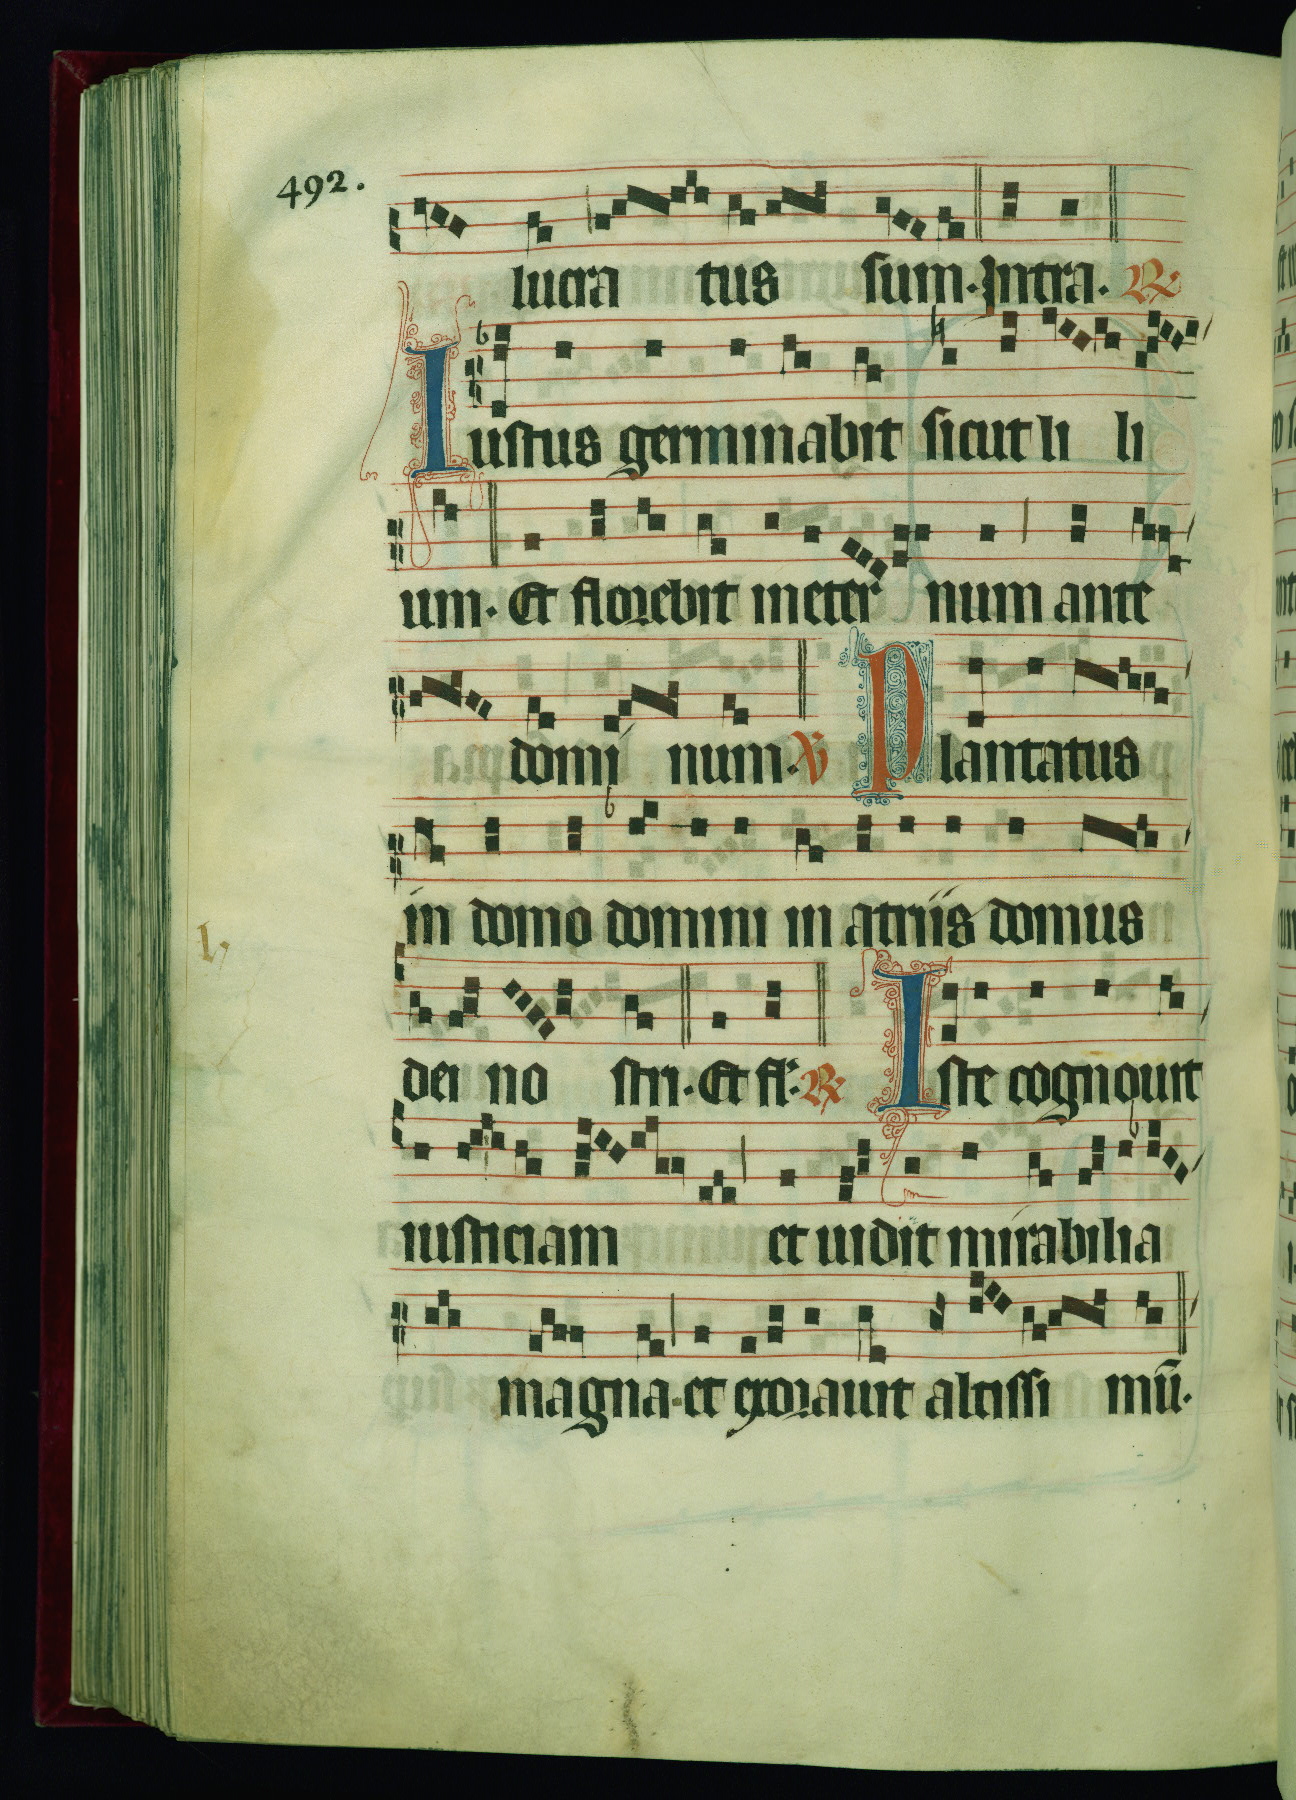 492.
lucra tus sum. Intra. ℟
Iustus germinabit sicut li li
um. Et florebit in eter num ante
domi num. ℣ Plantatus
in domo domini in atriis domus
dei no stri. Et fl. ℟ Iste cognouit
iusticiam et uidit mirabilia
magna. et exorauit altissi mū.